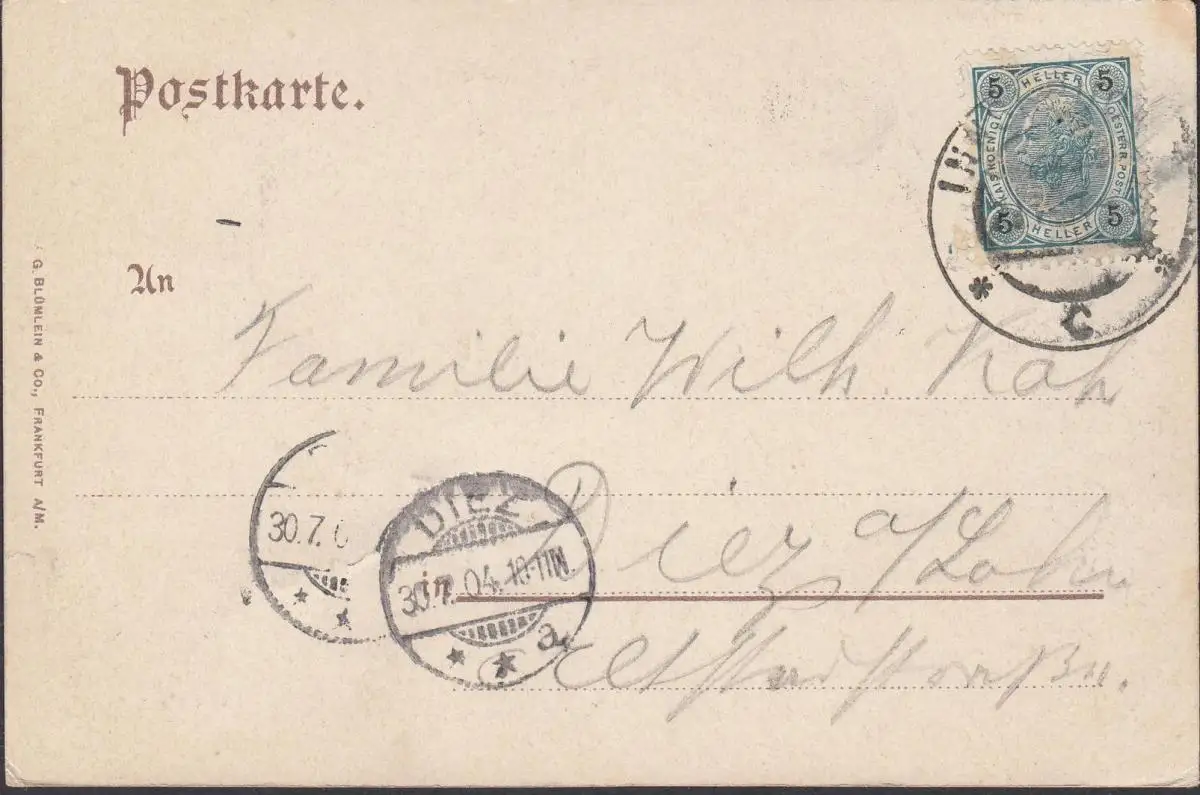 Postkarte.
5 HELLER 5
KAIS. KOENIGL. OESTERR. POST.
5 HELLER 5
C
An
Familie Wilh. Kah
G. BLÜMLEIN & CO., FRANKFURT A/M.
30.7.
DIEZ
30.7.04. 10-11N
a.
Diez a/Lahn